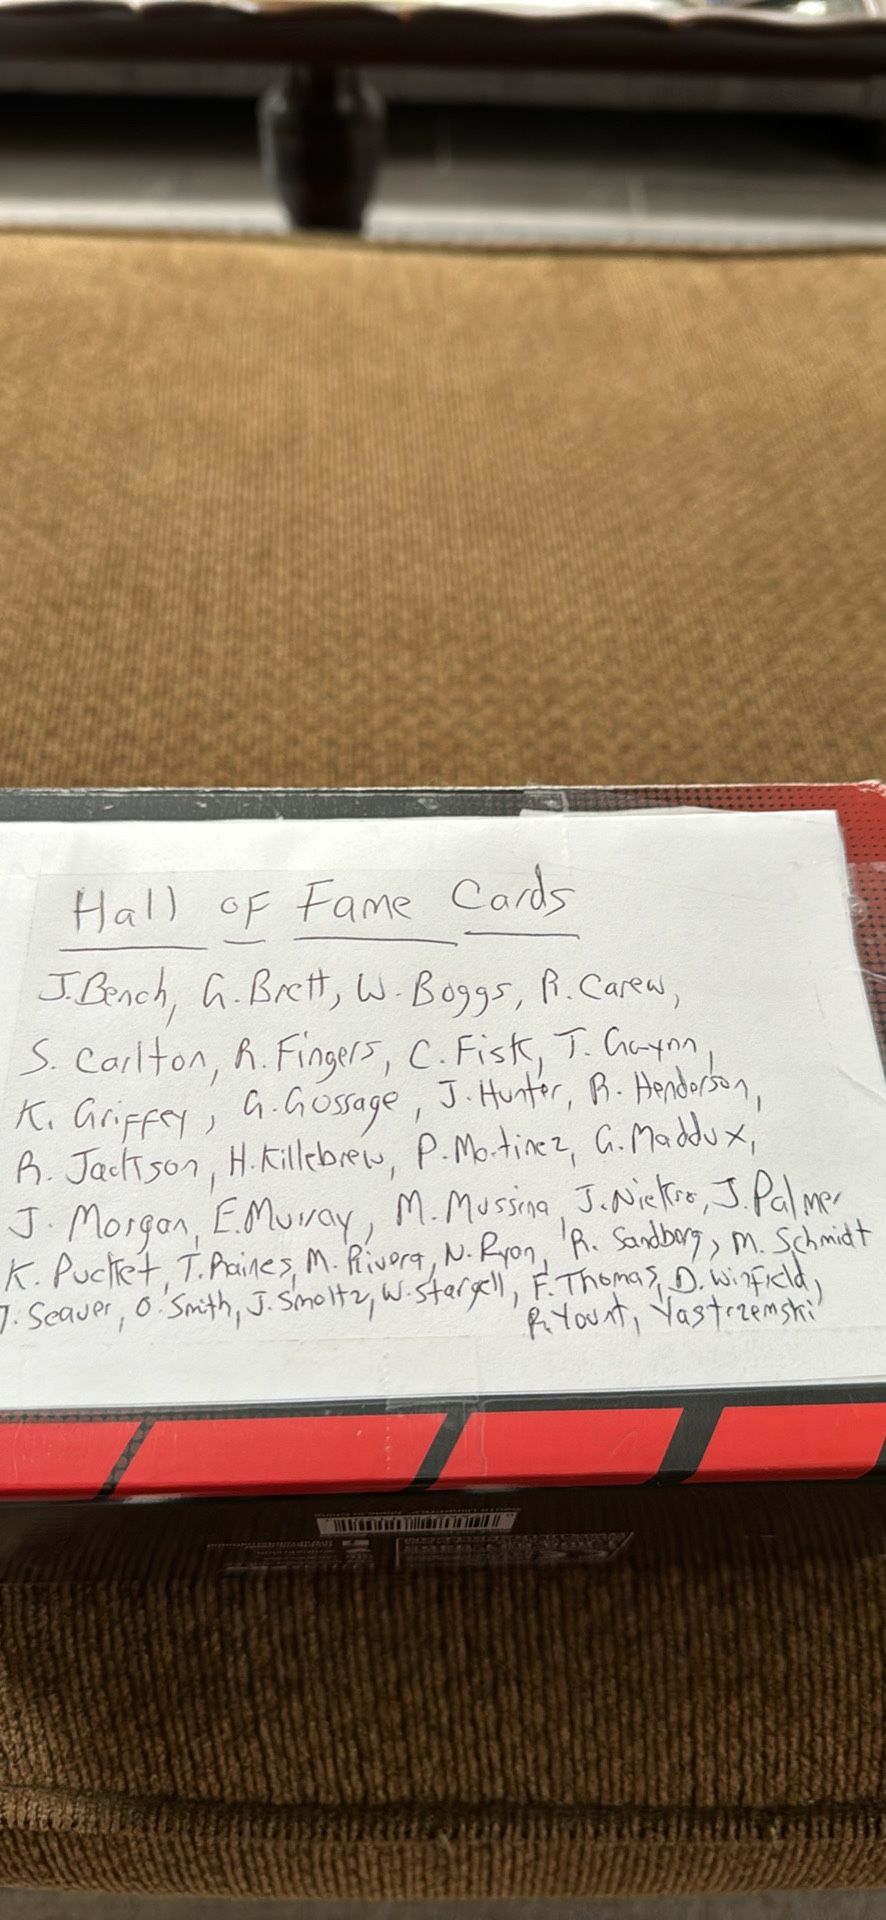 Hall of Fame Cards
J. Bench, G. Brett, W. Boggs, R. Carew,
S. Carlton, R. Fingers, C. Fisk, T. Gwynn,
K. Griffey, G. Gossage, J. Hunter, R. Henderson,
R. Jackson, H. Killebrew, P. Martinez, G. Maddux,
J. Morgan, E. Murray, M. Mussina, J. Niekro, J. Palmer
K. Pucket, T. Raines, M. Rivera, N. Ryan, R. Sandberg, M. Schmidt
T. Seaver, O. Smith, J. Smoltz, W. Stargell, F. Thomas, D. Winfield,
R. Yount, Yastrzemski